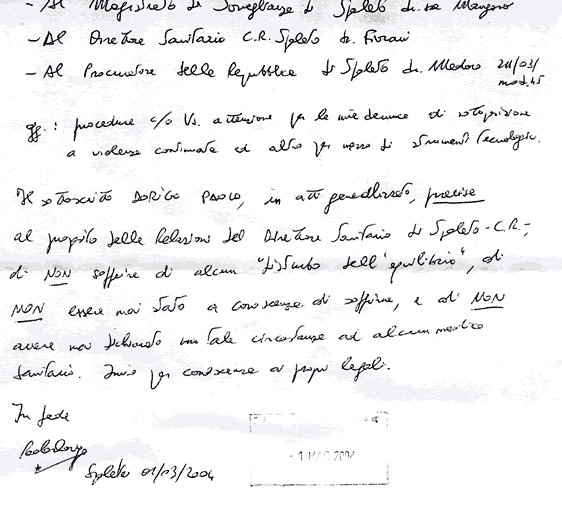 - Al Magistrato di Sorveglianza di Spoleto dr.ssa Manganaro
- Al Direttore Sanitario C.R. Spoleto dr. Fiorani
- Al Procuratore della Repubblica di Spoleto dr. Medoro 211/03/
mod.45
gg.: procedure c/o Vs. attenzione per le mie denunce di sottoposizione
a violenze continuate ed altro per mezzo di strumenti tecnologici.
Il sottoscritto DORIGO PAOLO, in atti generalizzato, precisa
al proposito della Relazione del Direttore Sanitario di Spoleto-C.R.-,
di NON soffrire di alcun "disturbo dell'equilibrio", di
NON essere mai stato a conoscenza di soffrirne, e di NON
avere mai dichiarato una tale circostanza ad alcun medico
Sanitario. Invio per conoscenza ai propri legali.
In fede
Paolo Dorigo
Spoleto 01/03/2004
- 1 MAR 2004